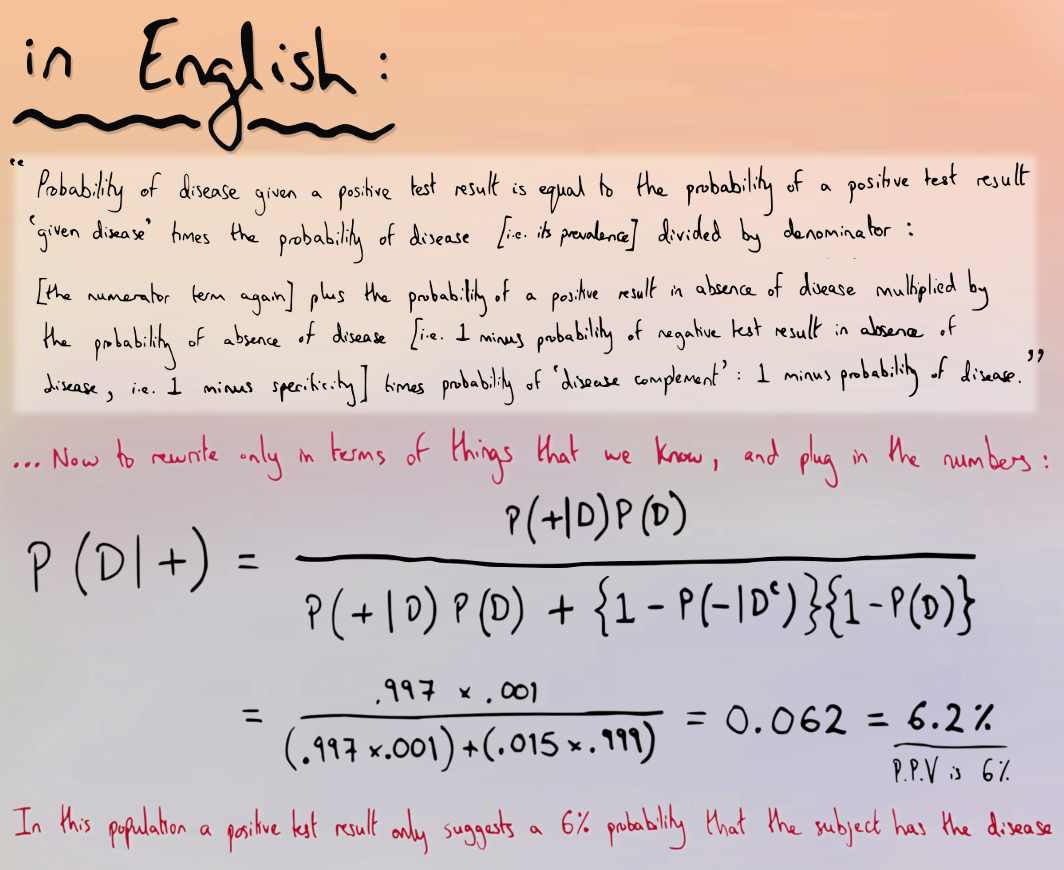 in English:
“Probability of disease given a positive test result is equal to the probability of a positive test result
‘given disease’ times the probability of disease [i.e. its prevalence] divided by denominator:
[the numerator term again] plus the probability of a positive result in absence of disease multiplied by
the probability of absence of disease [i.e. 1 minus probability of negative test result in absence of
disease, i.e. 1 minus specificity] times probability of ‘disease complement’: 1 minus probability of disease.”
... Now to rewrite only in terms of things that we know, and plug in the numbers:
P(+|D)P(D)
P(D|+) =
P(+|D) P(D) + {1 - P(-|Dᶜ)}{1-P(D)}
.997 × .001
= = 0.062 = 6.2%
(.997 ×.001)+(.015 ×.999)
P.P.V is 6%
In this population a positive test result only suggests a 6% probability that the subject has the disease